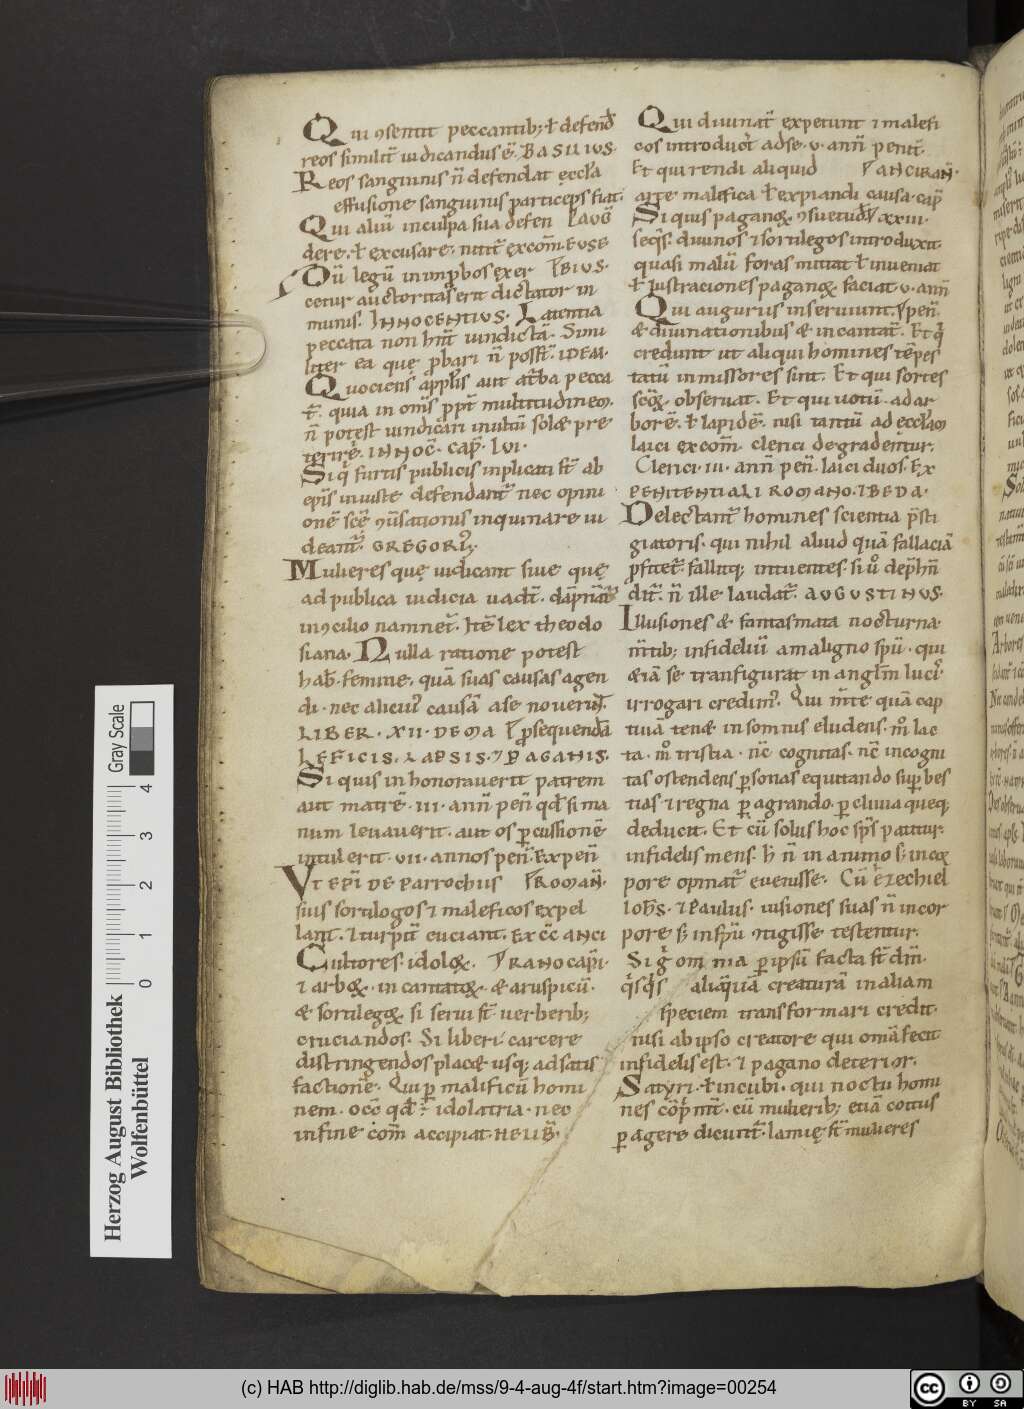 Qui ꝯsentit peccantib; ł defend̄
reos similit̄ iudicandus ē. BASILIUS.
Reos sanguinis n̄ defendat ęccła
effusione sanguinis particeps fiat.
Qui aliū in culpa sua defen AUḠ
dere. ł excusare. nitit̄ excom̄. EUSE
Dū legū in imp̱bos exer BIUS.
cetur auctoritas erit dictator in
munis. INNOCENTIUS. Latentia
peccata non hn̄t uindictā. Simi
liter ea que p̱bari n̄ poss̄t. IDEM.
Quociens a pp̄lis aut at̄ba pecca
t̄. quia in om̄s pp̄t multitudinem.
n̄ potest uindicari inultū solæ pre
terire. INNOC̄. cap̄. lvi.
Si q̇ furtis publicis inplicati st̄ ab
ep̄is iniuste defendant̄ nec opini
onē sc̄ę ꝯuersationis inquinare ui
deant̄. GREGORI9.
Mulieres quę iudicant siue quę
ad publica iudicia uad̄t. dāpnat̄
in ꝯcilio namnet̄. Itē lex theodo
siana. Nulla ratione potest
hab̄. femine. quā suas causas agen
di. nec alicui9 causā a se nouerit̄.
LIBER. XII. DE MA
LEFICIS. LAPSIS. 7 PAGANIS.
Si quis inhonorauerit patrem
aut matrē. iii. ann̄ pen̄ qd̄ si ma
num leuauerit. aut os p̱cussionē
intulerit. vii. annos pen̄. Ex pen̄
Ut ep̄i de parrochiis ROMAÑ.
suis sortilogos 7 maleficos expel
lant. 7 turpit̄ eiiciant. EX CC̄ ANCI
Cultores idoloꝝ. RANO CAP̄I.
7 arboꝝ. incantatoꝝ. & aruspicū.
& sortilegoꝝ. si serui st̄ uerberib;
cruciandos. Si liberi carcere
distringendos placæ usq; ad satis
factionē. Qui p̱ malificiū homi
nem. occ̄ qd̄ ÷ idolatria. nec
in fine com̄ accipiat. HELIB̄.
Qui diuinat̄ expetunt 7 malefi
cos introduct̄ ad se. v. ann̄ penit̄.
Et qui rendi aliquid ANCIRAN̄.
arte malefica ł expiandi causa. cap̄
Si quis paganoꝝ ꝯsuetud̄ xxiii.
seq̄s. diuinos 7 sortilegos introduxit.
quasi malū foras mittat ł inueniat
ł lustraciones paganoꝝ. faciat v. ann̄
Qui auguriis inseruiunt. pen̄.
& diuinationibus & incantat̄. Et q̇
credunt ut aliqui homines tēpes
tatū inmissores sint. Et qui sortes
sc̄oꝝ. obseruat. Et qui uotū. ad ar
borē. ł lapidē. nisi tantū ad ęccłam
laici excom̄. clerici degradentur.
Clerici iii. ann̄ pen̄. laici duos. EX
PENITENTIALI ROMANO. 7 BEDA.
Delectant̄ homines scientia p̄sti
giatoris. qui nihil aliud quā fallaciā
p̱fitet̄. fallitq; intuentes. si u̇o dep̄hn̄
dit̄. n̄ ille laudat̄. AUGUSTINUS.
Illusiones & fantasmata nocturna.
m̄tib; infideliū a maligno sp̄ū. qui
& iā se tranfigurat in angl̄m luci9.
irrogari credim9. Qui m̄te quā cap
tiuā tenæ in somnis eludens. m̊ læ
ta. m̊ tristia. nc̄ cognitas. nc̄ incogni
tas ostendens p̱sonas equitando sup̱ bes
tias 7 regna p̱agrando. p̱ cliuia queq;
deducit. Et cū solus hoc sp̄s patitur.
infidelis mens. h̄ n̄ in animo s; in cor
pore opinat̄ euenisse. Cū ezechiel
Ioh̄s. 7 Paulus. uisiones suas n̄ in cor
pore s; in sp̄ū ꝯtigisse testentur.
Si g̊ omnia p̱ ipsū facta st̄ dm̄.
q̇sq̇s aliq̇uā creaturā in aliam
speciem transformari credit.
nisi ab ipso creatore qui omā fecit
infidelis est. 7 pagano deterior.
Satyri. ł incubi. qui noctu homi
nes cōp̄m̄t. cū mulierib; etiā coitus
p̱agere dicunt̄. lamię st̄ mulieres
Herzog August Bibliothek
Wolfenbüttel
Gray Scale
0 1 2 3 4
(c) HAB http://diglib.hab.de/mss/9-4-aug-4f/start.htm?image=00254
cc BY SA